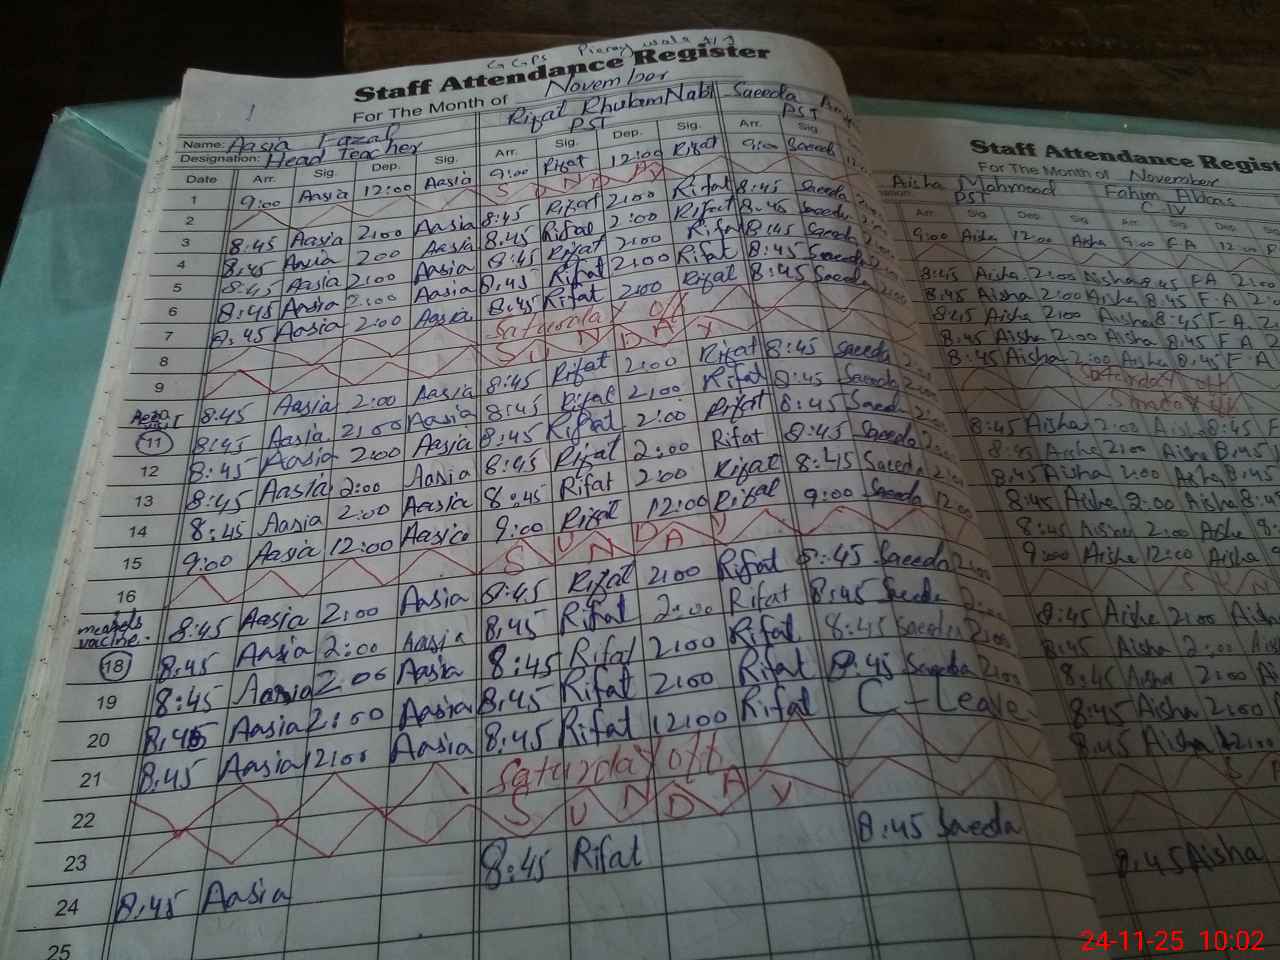 GGPS
Staff Attendance Register
For The Month of November
Name: Aasia Fazal Rifat Ghulam Nabi Saeeda
Designation: Head Teacher PST PST
Date Arr. Sig. Dep. Sig. Arr. Sig. Dep. Sig. Arr. Sig
1 9:00 Aasia 12:00 Aasia 9:00 Rifat 12:00 Rifat 9:00 Saeeda
2 SUNDAY
3 8:45 Aasia 2:00 Aasia 8:45 Rifat 2:00 Rifat 8:45 Saeeda
4 8:45 Aasia 2:00 Aasia 8:45 Rifat 2:00 Rifat 8:45 Saeeda
5 8:45 Aasia 2:00 Aasia 8:45 Rifat 2:00 Rifat 8:45 Saeeda
6 8:45 Aasia 2:00 Aasia 8:45 Rifat 2:00 Rifat 8:45 Saeeda
7 8:45 Aasia 2:00 Aasia 8:45 Rifat 2:00 Rifat 8:45 Saeeda
8 Saturday off
9 SUNDAY
8:45 Aasia 2:00 Aasia 8:45 Rifat 2:00 Rifat 8:45 Saeeda
11 8:45 Aasia 2:00 Aasia 8:45 Rifat 2:00 Rifat 8:45 Saeeda
12 8:45 Aasia 2:00 Aasia 8:45 Rifat 2:00 Rifat 8:45 Saeeda
13 8:45 Aasia 2:00 Aasia 8:45 Rifat 2:00 Rifat 8:45 Saeeda 2:00
14 8:45 Aasia 2:00 Aasia 8:45 Rifat 2:00 Rifat 8:45 Saeeda 2:00
15 9:00 Aasia 12:00 Aasia 9:00 Rifat 12:00 Rifat 9:00 Saeeda 12:00
16 SUNDAY
measels vaccine. 8:45 Aasia 2:00 Aasia 8:45 Rifat 2:00 Rifat 8:45 Saeeda 2:00
18 8:45 Aasia 2:00 Aasia 8:45 Rifat 2:00 Rifat 8:45 Saeeda 2:00
19 8:45 Aasia 2:00 Aasia 8:45 Rifat 2:00 Rifat 8:45 Saeeda 2:00
20 8:45 Aasia 2:00 Aasia 8:45 Rifat 2:00 Rifat 8:45 Saeeda 2:00
21 8:45 Aasia 12:00 Aasia 8:45 Rifat 12:00 Rifat C-Leave
22 Saturday off
23 SUNDAY
24 8:45 Aasia 8:45 Rifat 8:45 Saeeda
25
Staff Attendance Regist
For The Month of November
Aisha Mahmood Fahim Abbas
PST C-IV
Arr. Sig. Dep. Sig. Arr. Sig. Dep
9:00 Aisha 12:00 Aisha 9:00 F.A 12:00
8:45 Aisha 2:00 Aisha 8:45 F.A 2:00
8:45 Aisha 2:00 Aisha 8:45 F.A 2:00
8:45 Aisha 2:00 Aisha 8:45 F.A 2:00
8:45 Aisha 2:00 Aisha 8:45 F.A
8:45 Aisha 2:00 Aisha 8:45 F.A
Saturday off
Sunday off
8:45 Aisha 2:00 Aisha 8:45 F
8:45 Aisha 2:00 Aisha 8:45
8:45 Aisha 2:00 Aisha 8:45
8:45 Aisha 2:00 Aisha 8:4
8:45 Aisha 2:00 Aisha 8:
9:00 Aisha 12:00 Aisha 9
SUN
8:45 Aisha 2:00 Aisha
8:45 Aisha 2:00
8:45 Aisha 2:00
8:45 Aisha 2:00
8:45 Aisha 12:00
8:45 Aisha
24-11-25 10:02